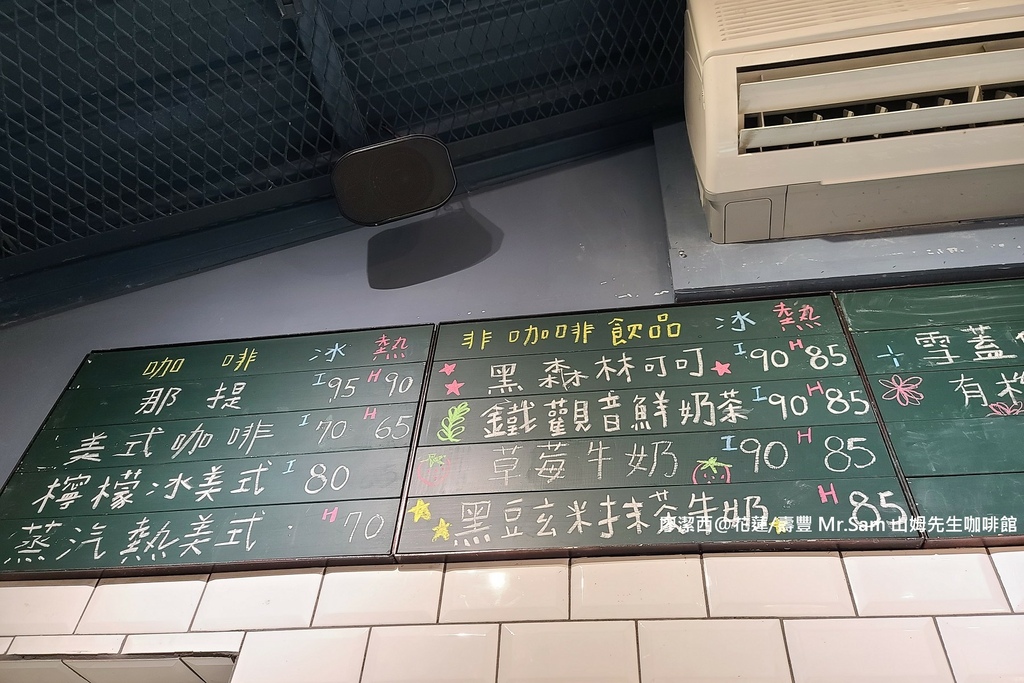 咖啡 冰 熱
那提 I 95 H 90
美式咖啡 I 70 H 65
檸檬冰美式 I 80
蒸汽熱美式 H 70
非咖啡飲品 冰 熱
黑森林可可 I 90 H 85
鐵觀音鮮奶茶 I 90 H 85
草莓牛奶 I 90 H 85
黑豆玄米抹茶牛奶 H 85
雪蓋
有機
廖潔西@花蓮壽豐 Mr.Sam 山姆先生咖啡館